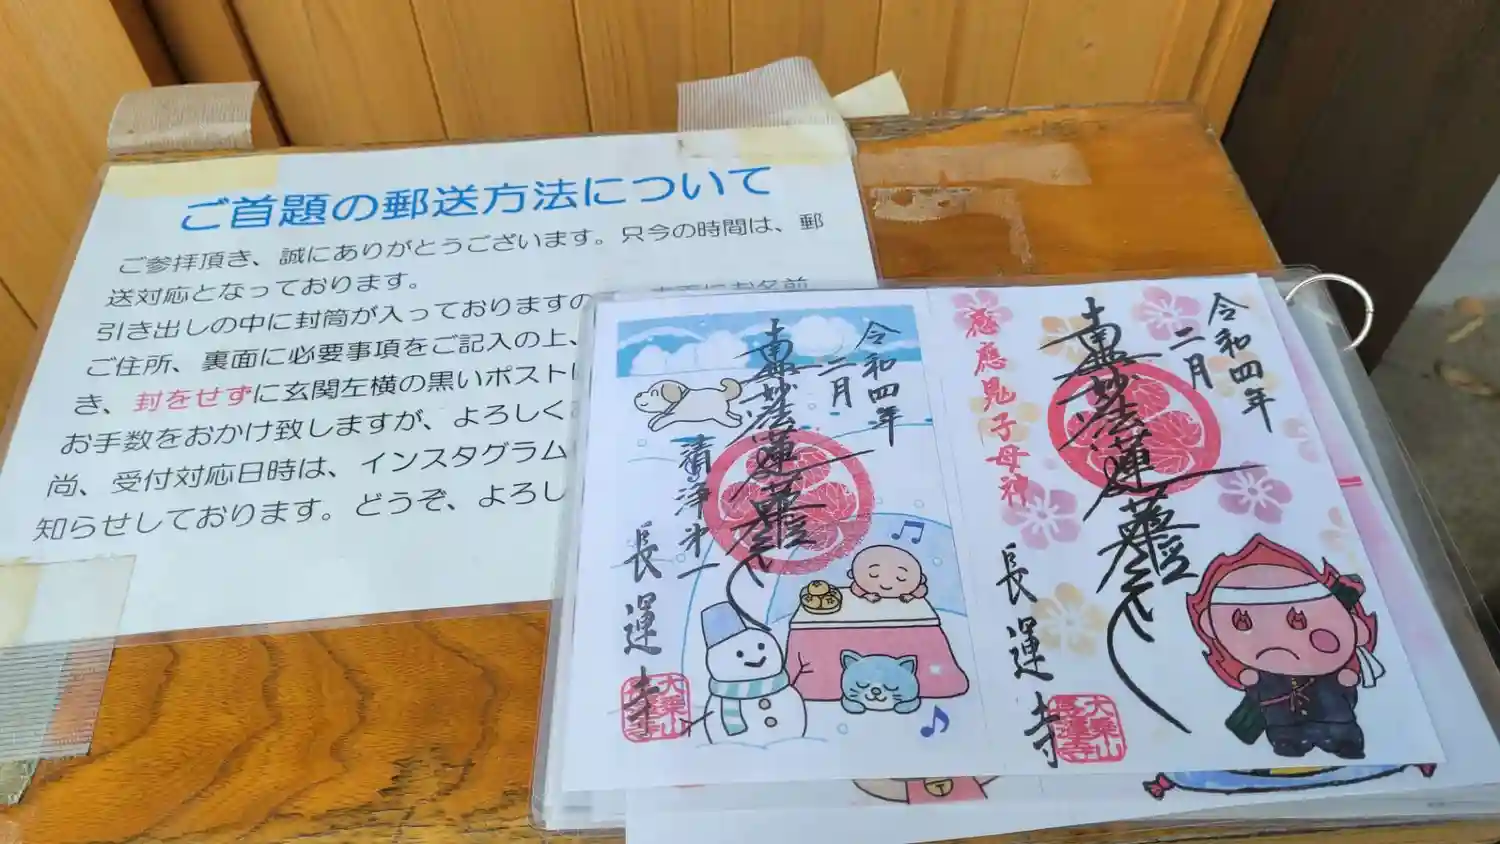 ご首題の郵送方法について
ご参拝頂き、誠にありがとうございます。只今の時間は、郵
送対応となっております。
引き出しの中に封筒が入っておりますの
ご住所、裏面に必要事項をご記入の上、
き、封をせずに玄関左横の黒いポスト
お手数をおかけ致しますが、よろしく
尚、受付対応日時は、インスタグラム
知らせしております。どうぞ、よろし
令和四年
二月
南無妙法蓮華経
清浄
長運寺
大乗山
令和四年
二月
南無妙法蓮華経
鬼子母神
長運寺
大乗山
長運寺